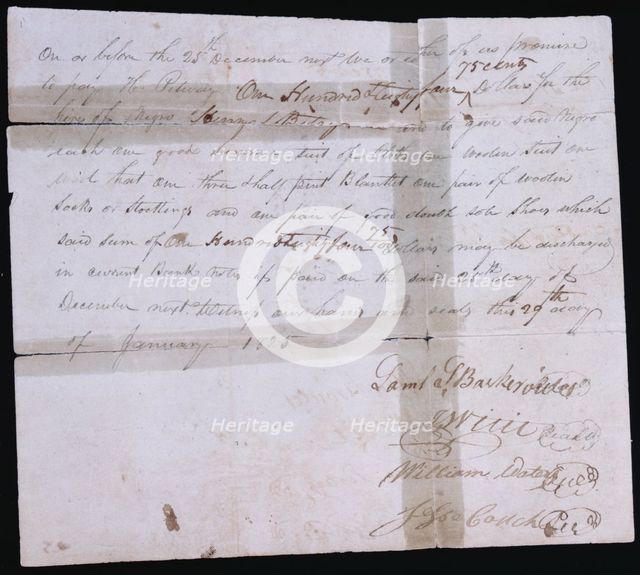 On or before the 25th December next We or either of us promise
75 cents
to pay H. Petway One Hundred Eighty four Dollars for the
hire of Negro Henry & Betsy and to give said Negro
each one good summer suit of cloth one woolen suit one
wool hat one three & half point Blanket one pair of woolen
socks or stockings and one pair of good double sole Shoes which
75
said sum of One Hundred Eighty four Dollars may be discharged
in current Bank notes if paid on the said 25th day of
December next. Witness our hands and seals this 29th day
of January 1825
Saml S Baskerville
William
J Couch
Heritage Heritage Heritage
Heritage Heritage